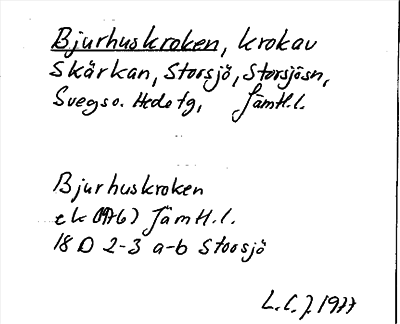 Bjurhuskroken, krokav
Skärkan, Storsjö, Storsjösn,
Svegs o. Hede tg, Jämtl.l.
Bjurhuskroken
ek (1976) Jämtl.l.
18 D 2-3 a-b Storsjö
L.C.J. 1977